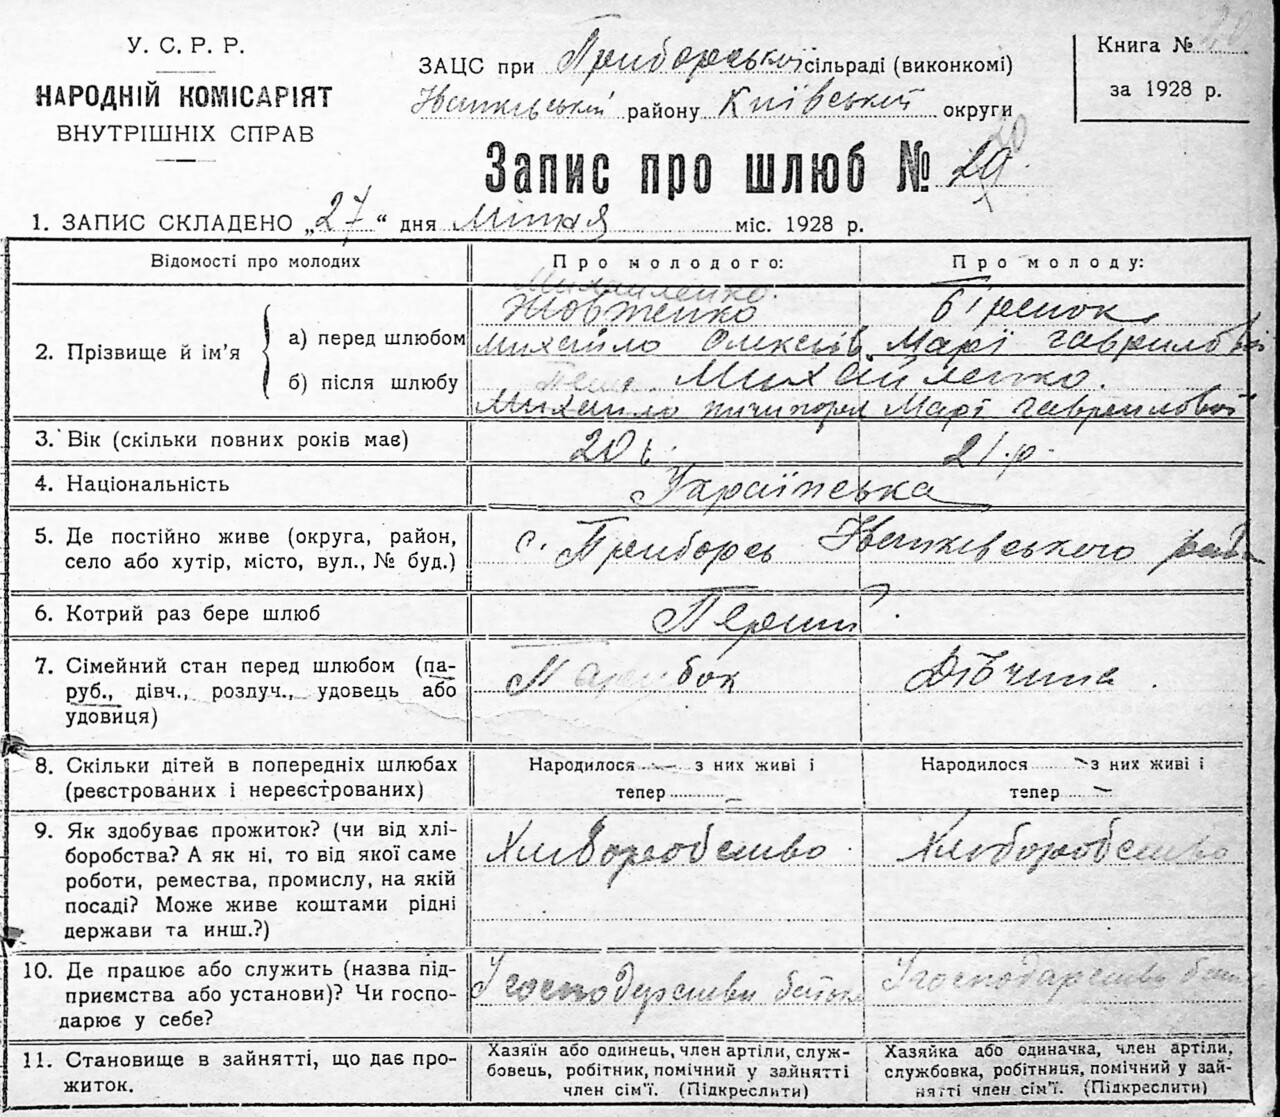 У. С. Р. Р.
НАРОДНІЙ КОМІСАРІЯТ
ВНУТРІШНІХ СПРАВ
ЗАЦС при Приборській сільраді (виконкомі)
Іванківській району Київській округи
Книга № 20
за 1928 р.
Запис про шлюб № 20
1. ЗАПИС СКЛАДЕНО „27“ дня міс. 1928 р.
Відомості про молодих
Про молодого:
Про молоду:
2. Прізвище й ім’я
а) перед шлюбом
б) після шлюбу
Михайленко.
Жовтенко
Михайло Олексіїв
Марї Гаврилової
Михайленко.
Михайло
Марї Гаврилової
3. Вік (скільки повних років має)
20
21.р.
4. Національність
Українська
5. Де постійно живе (округа, район,
село або хутір, місто, вул., № буд.)
с. Приборсь Іванківського
6. Котрий раз бере шлюб
Перший
7. Сімейний стан перед шлюбом (па-
руб., дівч., розлуч., удовець або
удовиця)
Парубок
Дівчина.
8. Скільки дітей в попередніх шлюбах
(реєстрованих і нереєстрованих)
Народилося — з них живі і
тепер —
Народилося — з них живі і
тепер —
9. Як здобуває прожиток? (чи від хлі-
боробства? А як ні, то від якої саме
роботи, ремества, промислу, на якій
посаді? Може живе коштами рідні
держави та инш.?)
Хліборобство
Хліборобство
10. Де працює або служить (назва під-
приємства або установи)? Чи госпо-
дарює у себе?
У господарстві батька
У господарстві
11. Становище в зайнятті, що дає про-
житок.
Хазяїн або одинець, член артіли, служ-
бовець, робітник, помічний у зайнятті
член сім’ї. (Підкреслити)
Хазяйка або одиначка, член артіли,
службовка, робітниця, помічний у зай-
нятті член сім’ї. (Підкреслити)